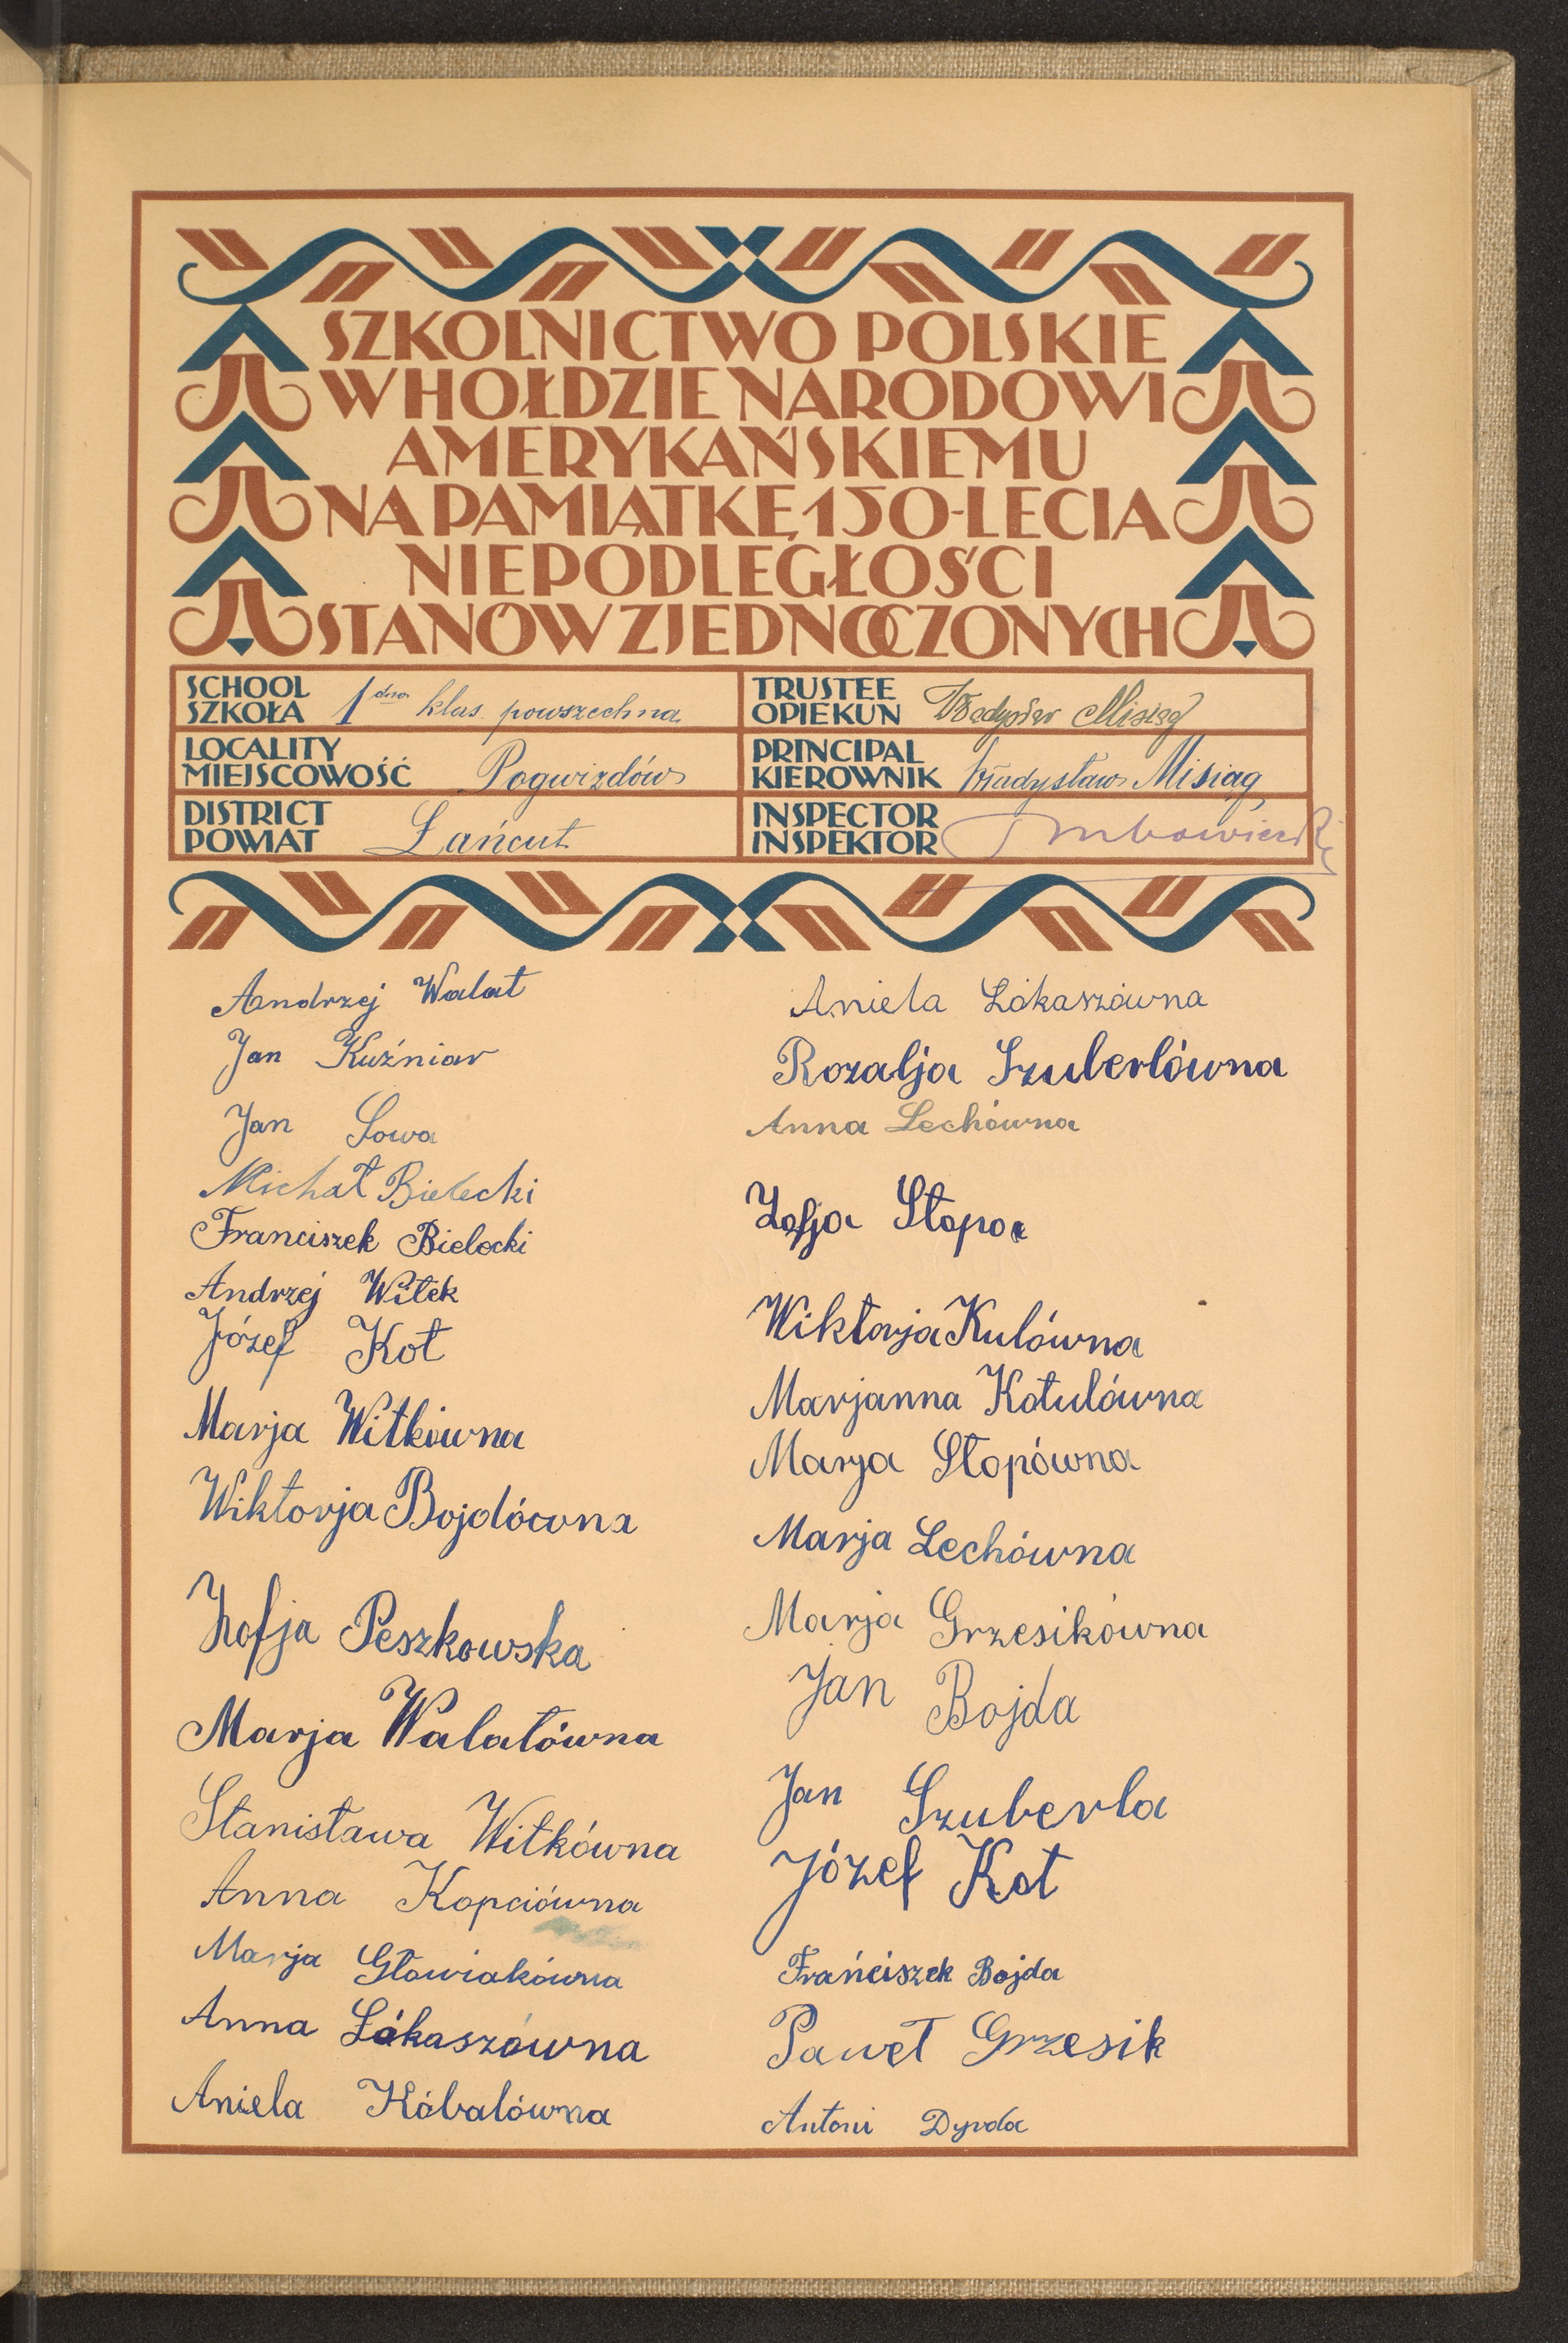 SZKOLNICTWO POLSKIE
W HOŁDZIE NARODOWI
AMERYKAŃSKIEMU
NA PAMIĄTKĘ 150-LECIA
NIEPODLEGŁOŚCI
STANÓW ZJEDNOCZONYCH
SCHOOL
SZKOŁA 1dno klas. powszechna
TRUSTEE
OPIEKUN Władysław Misiąg
LOCALITY
MIEJSCOWOŚĆ Pogwizdów
PRINCIPAL
KIEROWNIK Władysław Misiąg
DISTRICT
POWIAT Łańcut
INSPECTOR
INSPEKTOR
Andrzej Walat
Jan Kuźniar
Jan Sowa
Michał Bielecki
Franciszek Bielecki
Andrzej Witek
Józef Kot
Marja Witkówna
Wiktorja Bojdówna
Zofja Peszkowska
Marja Walatówna
Stanisława Witkówna
Anna Kopciówna
Marja Głowiakówna
Anna Łókaszówna
Aniela Kóbalówna
Aniela Łókaszówna
Rozalja Szuberlówna
Anna Lechówna
Zofja Słopa
Wiktorja Kulówna
Marjanna Kotulówna
Marja Słopówna
Marja Lechówna
Marja Grzesikówna
Jan Bojda
Jan Szuberla
Józef Kot
Frańciszek Bojda
Paweł Grzesik
Antoni Dyrda